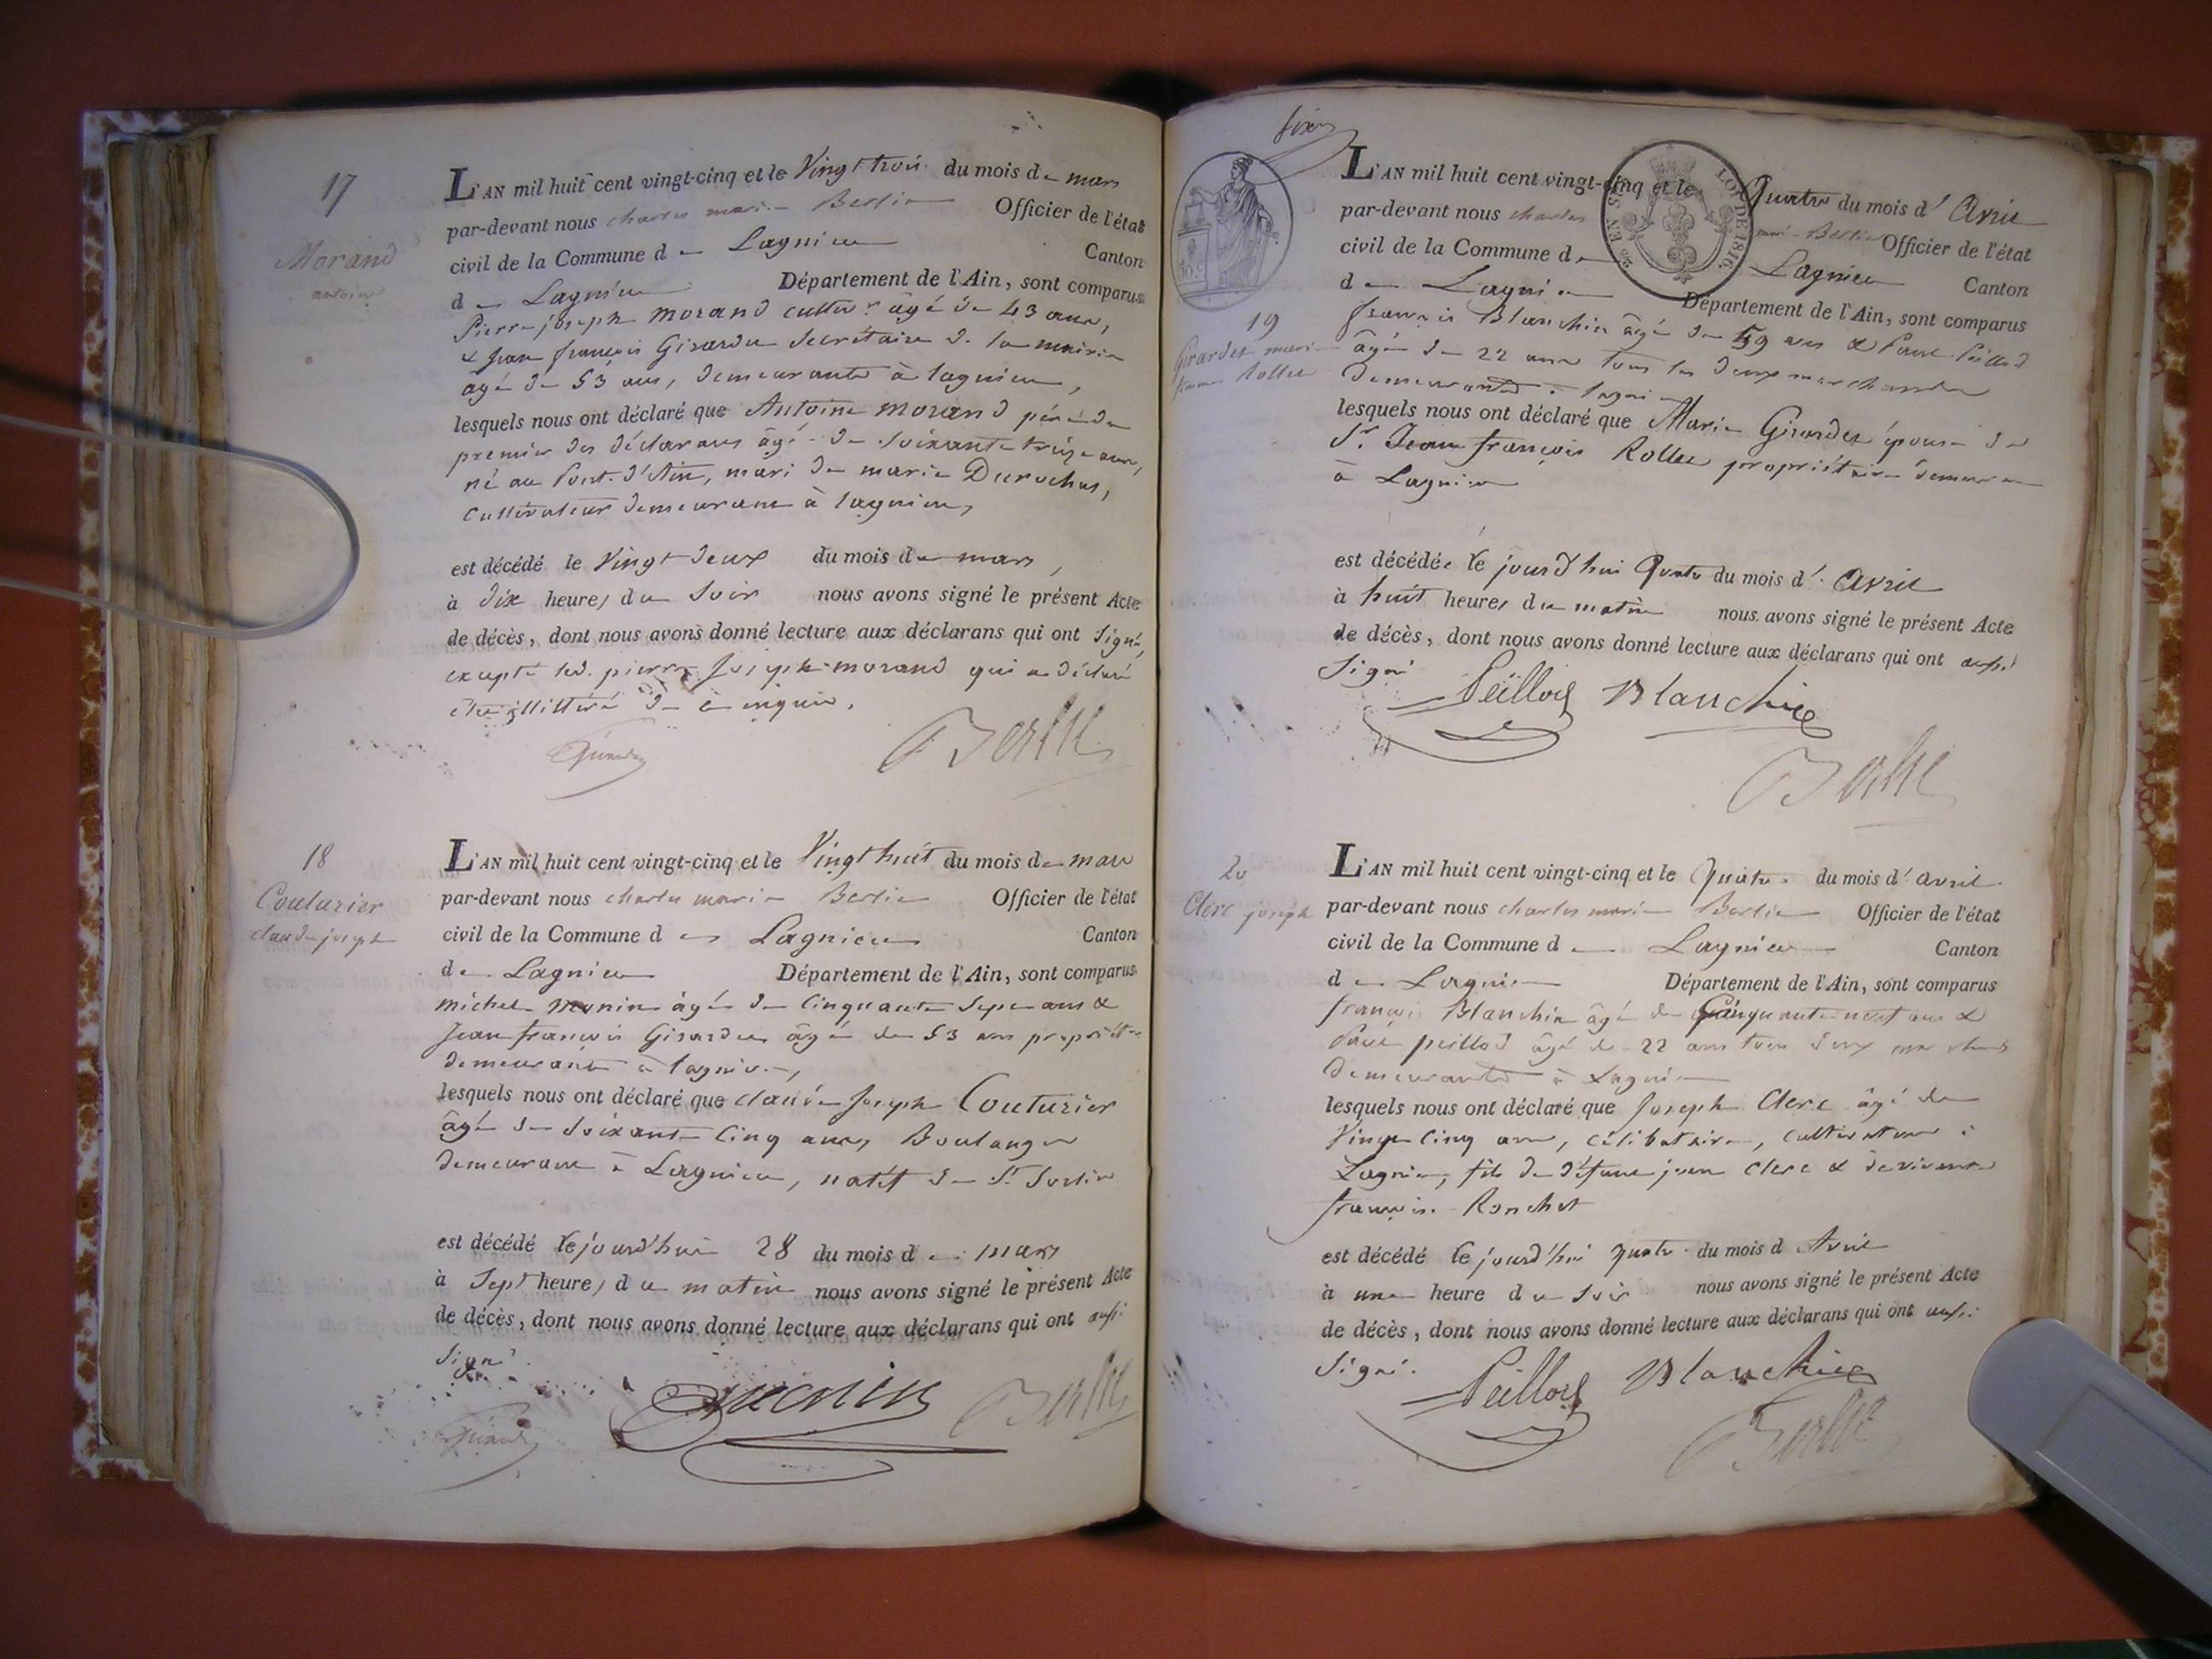 17
Morand
antoine
L'AN mil huit cent vingt-cinq et le Vingt trois du mois de mars
par-devant nous charles marie Berlie Officier de l'état
civil de la Commune de Lagnieu Canton
de Lagnieu Département de l'Ain, sont comparus
Pierre joseph Morand cultivr âgé de 43 ans,
& jean françois Girardet Secrétaire de la mairie
âgé de 53 ans, demeurants à lagnieu,
lesquels nous ont déclaré que Antoine morand père du
premier des déclarans âgé de soixante treize ans,
né au Pont-d'Ain, mari de marie Durochat,
cultivateur demeurant à lagnieu,
est décédé le Vingt deux du mois de mars,
à dix heures du soir nous avons signé le présent Acte
de décès, dont nous avons donné lecture aux déclarans qui ont signé,
excepté led. pierre joseph morand qui a déclaré
être illittéré de ce enquis.
Berlie
18
Couturier
claude joseph
L'AN mil huit cent vingt-cinq et le Vingt huit du mois de mars
par-devant nous charles marie Berlie Officier de l'état
civil de la Commune de Lagnieu Canton
de Lagnieu Département de l'Ain, sont comparus
michel monin âgé de Cinquante sept ans &
jean françois Girardet âgé de 53 ans propriétre
demeurant à lagnieu,
lesquels nous ont déclaré que claude joseph Couturier
âgé de soixante Cinq ans, Boulanger
demeurant à Lagnieu, natif de St Sorlin
est décédé le jourd'hui 28 du mois de mars
à Sept heures du matin nous avons signé le présent Acte
de décès, dont nous avons donné lecture aux déclarans qui ont aussi
signé.
Berlie
LOI DE 1816.
19
Girardet marie
femme Rollet
L'AN mil huit cent vingt-cinq et le Quatre du mois d'Avril
par-devant nous charles marie Berlie Officier de l'état
civil de la Commune de Lagnieu Canton
de Lagnieu Département de l'Ain, sont comparus
françois Blanchin âgé de 59 ans & Paul Peillod
âgé de 22 ans tous les deux marchands
demeurants à lagnieu
lesquels nous ont déclaré que Marie Girardet épouse de
Sr. Jean françois Rollet propriétaire demeurant
à Lagnieu
est décédée le jourd'hui Quatre du mois d'Avril
à huit heures du matin nous avons signé le présent Acte
de décès, dont nous avons donné lecture aux déclarans qui ont aussi
signé
Peillod Blanchin
Berlie
20
Clerc joseph
L'AN mil huit cent vingt-cinq et le Quatre du mois d'avril
par-devant nous charles marie Berlie Officier de l'état
civil de la Commune de Lagnieu Canton
de Lagnieu Département de l'Ain, sont comparus
françois Blanchin âgé de Cinquante neuf ans &
Paul peillod âgé de 22 ans tous deux marchands
demeurants à Lagnieu
lesquels nous ont déclaré que Joseph Clerc âgé de
Vingt Cinq ans, célibataire, cultivateur à
Lagnieu, fils de défunt jean Clerc & de vivante
françoise Ronchet
est décédé le jourd'hui quatre du mois d Avril
à une heure du soir nous avons signé le présent Acte
de décès, dont nous avons donné lecture aux déclarans qui ont aussi
signé.
Peillod Blanchin
Berlie